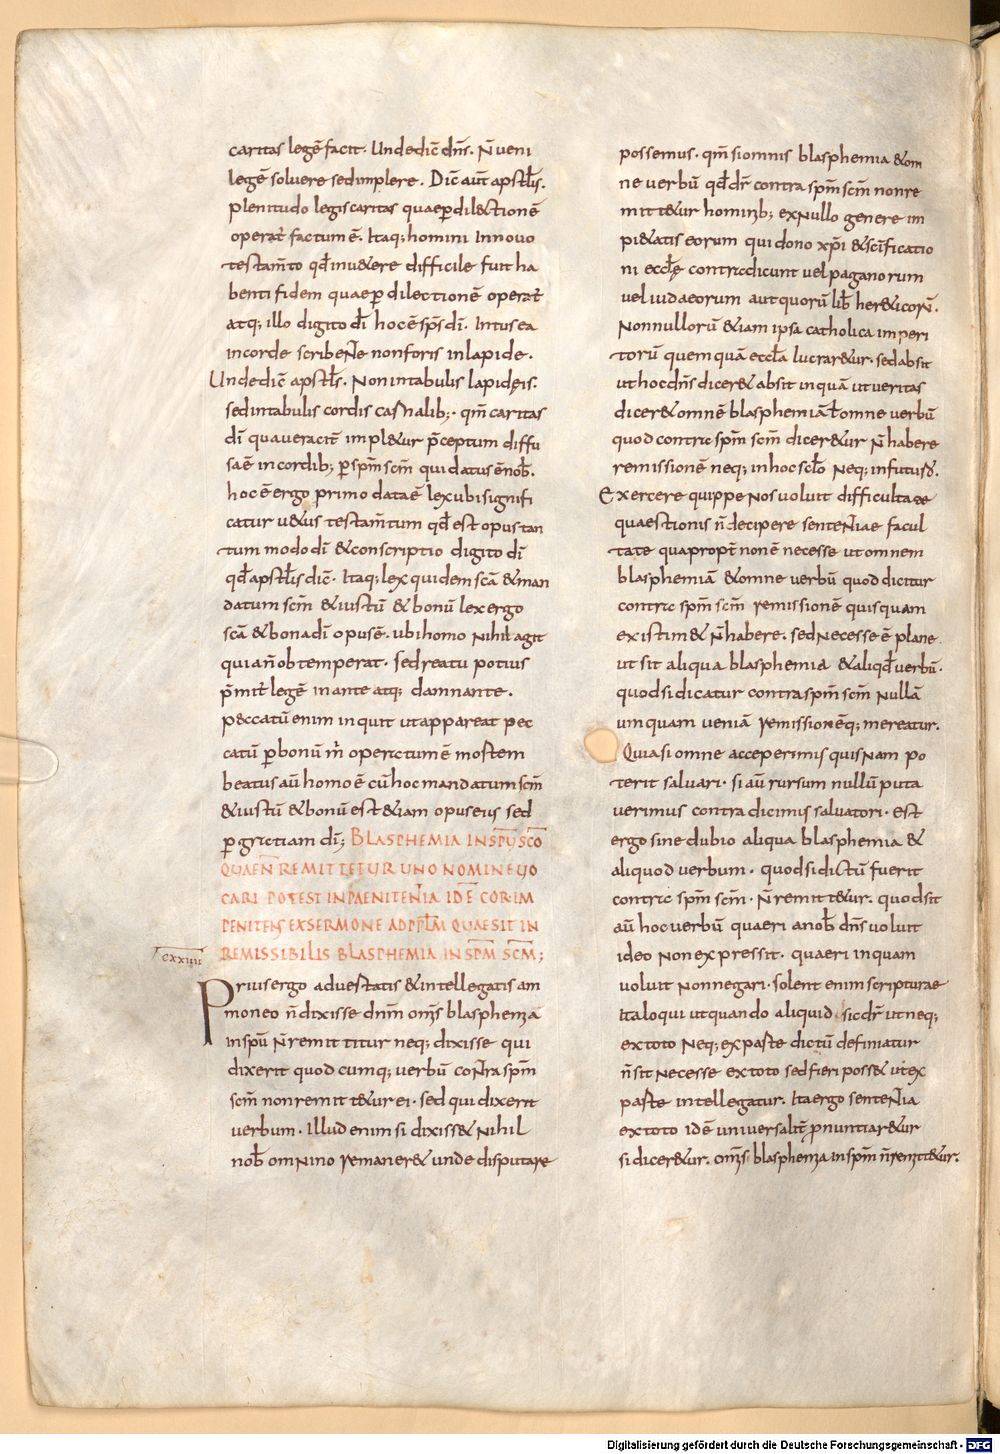 caritas legē facit. Undedic̄ dn̄s. N̄ ueni
legē soluere sedimplere. Dic̄ aut̄ apstl̄s.
plenitudo legis caritas quae ꝑ dilectionē
operat̄ factum ē. Itaq; homini Innouo
testam̄to qd̄ inu&ere difficile fuit ha
benti fidem quae ꝑ dilectionē operat̄
atq; illo digito dī hoc ē sps̄ dī. Intus ea
incorde scribente non foris in lapide.
Undedic̄ apstl̄s. Non intabulis lapideis.
sedintabulis cordis carnalib;. qm̄ caritas
dī qua ueracit̄ impl&ur p̄ceptum diffu
sa ē incordib; ꝑ spm̄ scm̄ qui datus ē nob̄.
hoc ē ergo primo data ē lex ubi signifi
catur u&us testam̄tum qd̄ est opus tan
tum modo dī & conscriptio digito dī
qd̄ apstl̄s dic̄. Itaq; lex quidem scā & man
datum scm̄ & iustū & bonū lex ergo
scā & bona dī opus ē. ubi homo nihil agit
quia n̄ obtemperat. sed reatu potius
p̄mit̄ legē inante atq; damnante.
peccatū enim inquit ut appareat pec
catū ꝑ bonū m̄ operatum ē mortem
beatus aū homo ē cū hoc mandatum scm̄
& iustū & bonū est &iam opus eius sed
ꝑ gratiam dī; BLASPHEMIA IN SPŪ SCŌ
QUAE N̄ REMITTETUR UNO NOMINE UO
CARI POTEST INPAENITENTIA ID Ē COR IM
PENITENS EX SERMONE AD PPL̄M QUAE SIT IN
REMISSIBILIS BLASPHEMIA IN SPM̄ SCM̄;
cxxiiii
Prius ergo aduertatis & intellegatis am
moneo n̄ dixisse dn̄m om̄s blasphemia
inspū n̄ remittitur neq; dixisse qui
dixerit quodcumq; uerbū contra spm̄
scm̄ non remitt&ur ei. sed qui dixerit
uerbum. Illud enim si dixiss& nihil
nob̄ omnino remaner& unde disputare
possemus. qm̄ si omnis blasphemia & om
ne uerbū qd̄ dr̄ contra spm̄ scm̄ non re
mitt&ur hominib; ex nullo genere im
pi&atis eorum qui dono xp̄i & scīficatio
ni eccl̄ę contradicunt uel paganorum
uel iudaeorum aut quorū lib̄ her&icorū.
Nonnullorū &iam ipsa catholica imperi
torū quemquā eccl̄a lucrar&ur. sed absit
ut hoc dn̄s dicer& absit inquā ut ueritas
dicer& omnē blasphemiā ł omne uerbū
quod contra spm̄ scm̄ dicer&ur n̄ habere
remissionē neq; in hoc scl̄o neq; in futuro.
Exercere quippe nos uoluit difficultate
quaestionis n̄ decipere sententiae facul
tate quapropt̄ non ē necesse ut omnem
blasphemiā & omne uerbū quod dicitur
contra spm̄ scm̄ remissionē quisquam
existim& n̄ habere. sed necesse ē plane
ut sit aliqua blasphemia & aliqd̄ uerbū.
quod si dicatur contra spm̄ scm̄ nullā
umquam ueniā remissionēq; mereatur.
Quia si omne acceperimis quisnam po
terit saluari. si aū rursum nullū puta
uerimus contradicimis saluatori. est
ergo sine dubio aliqua blasphemia &
aliquod uerbum. quod si dictū fuerit
contra spm̄ scm̄. n̄ remitt&ur. quod sit
aū hoc uerbū quaeri a nob̄ dn̄s uoluit
ideo non expressit. quaeri inquam
uoluit non negari. solent enim scripturae
ita loqui ut quando aliquid sic dr̄ ut neq;
ex toto neq; ex parte dictū definiatur
n̄ sit necesse ex toto sed fieri poss& ut ex
parte intellegatur. Ita ergo sententia
ex toto id ē uniuersalit̄ ꝓnuntiar&ur
si dicer&ur. om̄s blasphemia in spm̄ n̄ remitt&ur.
Digitalisierung gefördert durch die Deutsche Forschungsgemeinschaft - DFG